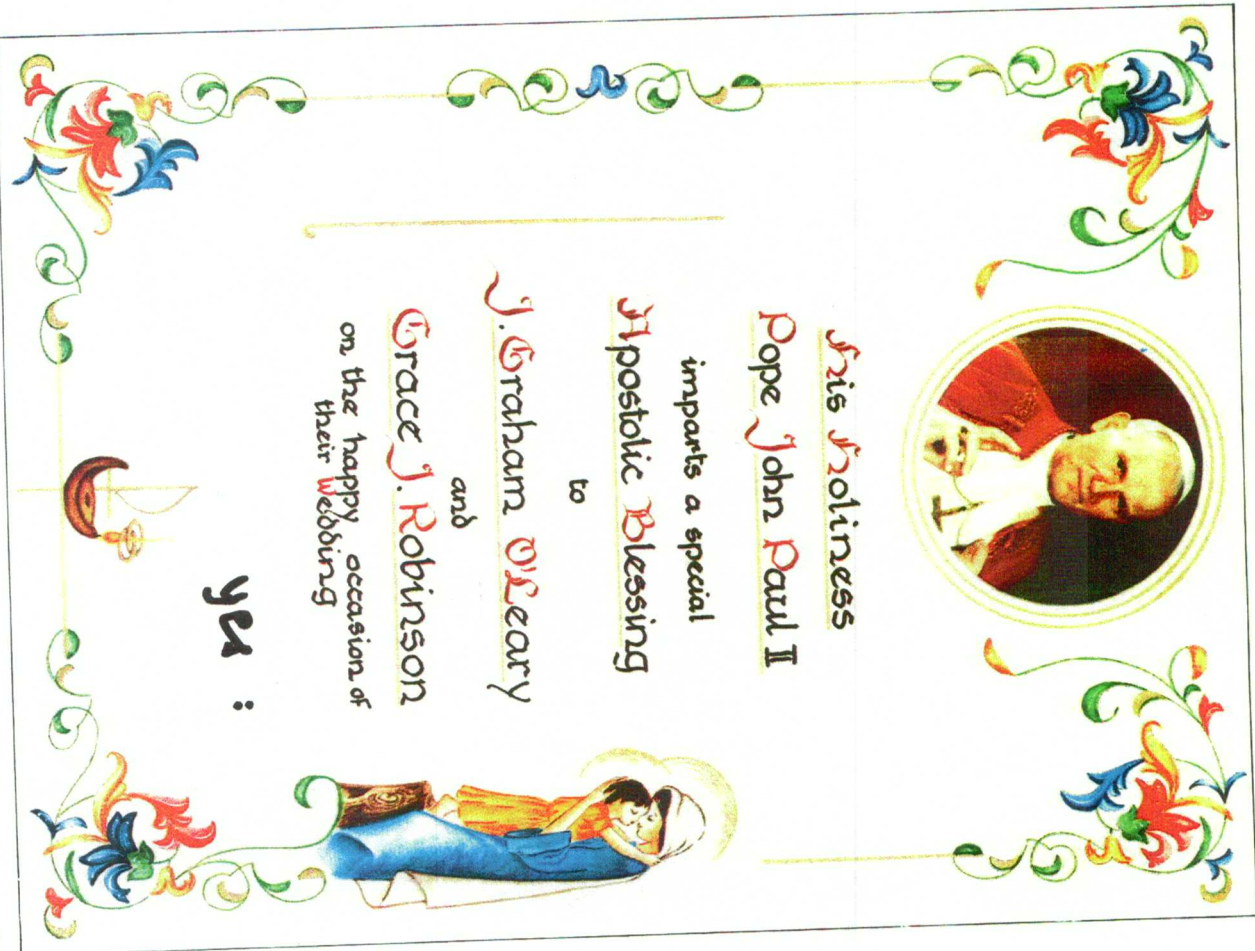 His Holiness
Pope John Paul II
imparts a special
Apostolic Blessing
to
J. Graham O'Leary
and
Grace J. Robinson
on the happy occasion of
their Wedding
yes :